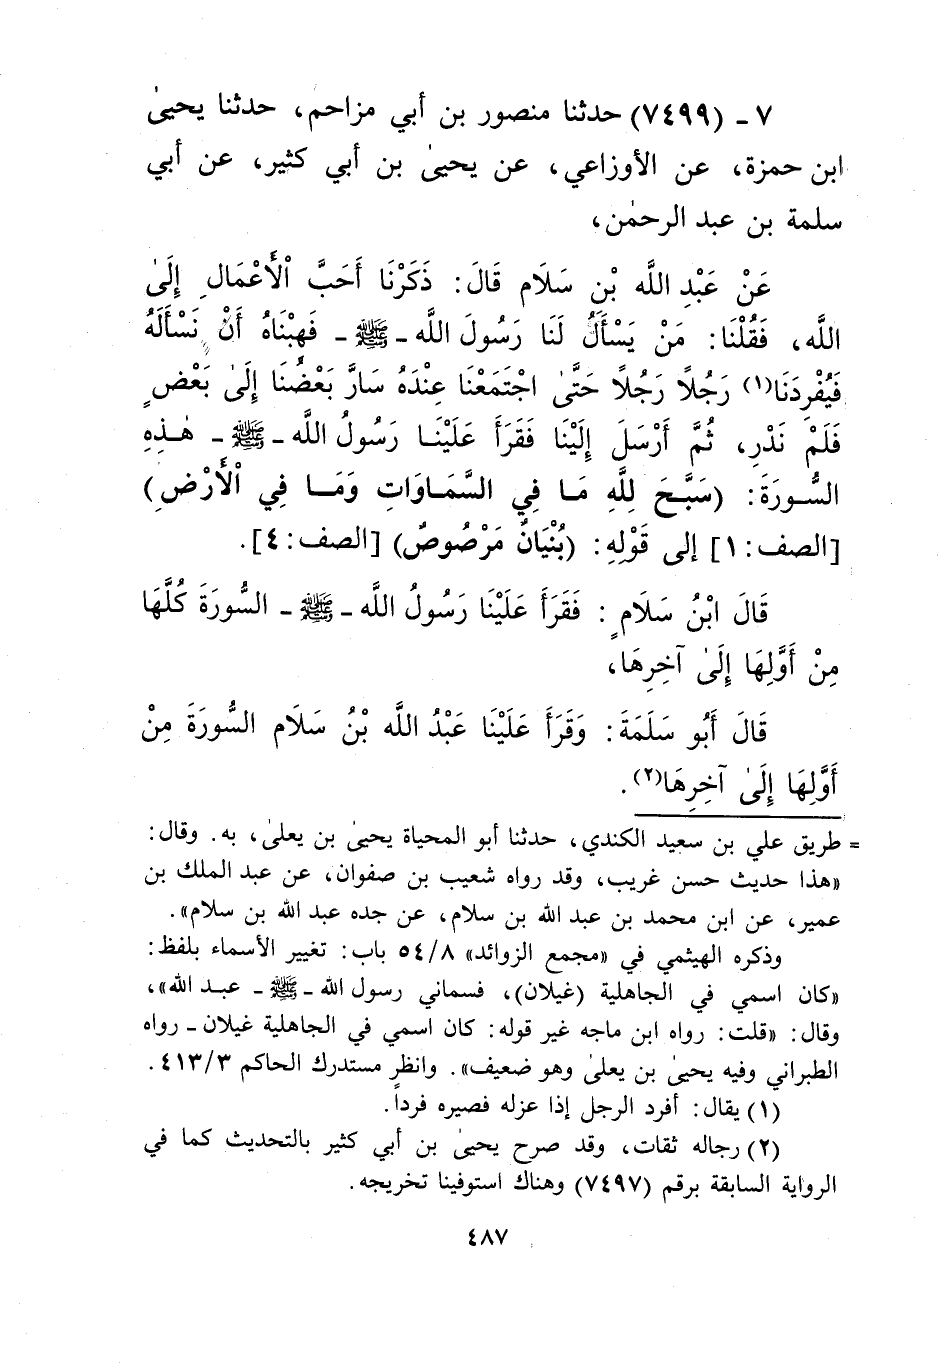 ٧ ـ (٧٤٩٩) حدثنا منصور بن أبي مزاحم، حدثنا يحيىٰ
ابن حمزة، عن الأوزاعي، عن يحيىٰ بن أبي كثير، عن أبي
سلمة بن عبد الرحمٰن،
عَنْ عَبْدِ اللَّه بْنِ سَلَام قَالَ: ذَكَرْنَا أَحَبَّ الْأَعْمَالِ إِلَىٰ
اللَّه، فَقُلْنَا: مَنْ يَسْأَلُ لَنَا رَسُولَ اللَّه ـ ﷺ ـ فَهِبْنَاهُ أَنْ نَسْأَلَهُ
فَيُفْرِدَنَا(١) رَجُلاً رَجُلاً حَتَّىٰ اجْتَمَعْنَا عِنْدَهُ سَارَّ بَعْضُنَا إِلَىٰ بَعْضٍ
فَلَمْ نَدْرِ، ثُمَّ أَرْسَلَ إِلَيْنَا فَقَرَأَ عَلَيْنَـا رَسُولُ اللَّه ـ ﷺ ـ هٰـذِهِ
السُّورَةَ: (سَبَّحَ لِلَّهِ مَـا فِي السَّمَـاوَاتِ وَمَـا فِي الْأَرْضِ)
[الصف: ١] إلى قَوْلِهِ: (بُنْيَانٌ مَرْصُوصٌ) [الصف: ٤].
قَالَ ابْنُ سَلَامٍ: فَقَرَأَ عَلَيْنَا رَسُولُ اللَّه ـ ﷺ ـ السُّورَةَ كُلَّهَا
مِنْ أَوَّلِهَا إِلَىٰ آخِرِهَا،
قَالَ أَبُو سَلَمَةَ: وَقَرَأَ عَلَيْنَا عَبْدُ اللَّه بْنُ سَلَام السُّورَةَ مِنْ
أَوَّلِهَا إِلَىٰ آخِرِهَا(٢).
= طريق علي بن سعيد الكندي، حدثنا أبو المحياة يحيىٰ بن يعلىٰ، به. وقال:
«هذا حديث حسن غريب، وقد رواه شعيب بن صفوان، عن عبد الملك بن
عمير، عن ابن محمد بن عبد الله بن سلام، عن جده عبد الله بن سلام».
وذكره الهيثمي في «مجمع الزوائد» ٥٤/٨ باب: تغيير الأسماء بلفظ:
«كان اسمي في الجاهلية (غيلان)، فسماني رسول الله ـ ﷺ ـ عبـد الله»،
وقال: «قلت: رواه ابن ماجه غير قوله: كان اسمي في الجاهلية غيلان ـ رواه
الطبراني وفيه يحيىٰ بن يعلىٰ وهو ضعيف». وانظر مستدرك الحاكم ٤١٣/٣.
(١) يقال: أفرد الرجل إذا عزله فصيره فرداً.
(٢) رجاله ثقات، وقد صرح يحيىٰ بن أبي كثير بالتحديث كما في
الرواية السابقة برقم (٧٤٩٧) وهناك استوفينا تخريجه.
٤٨٧